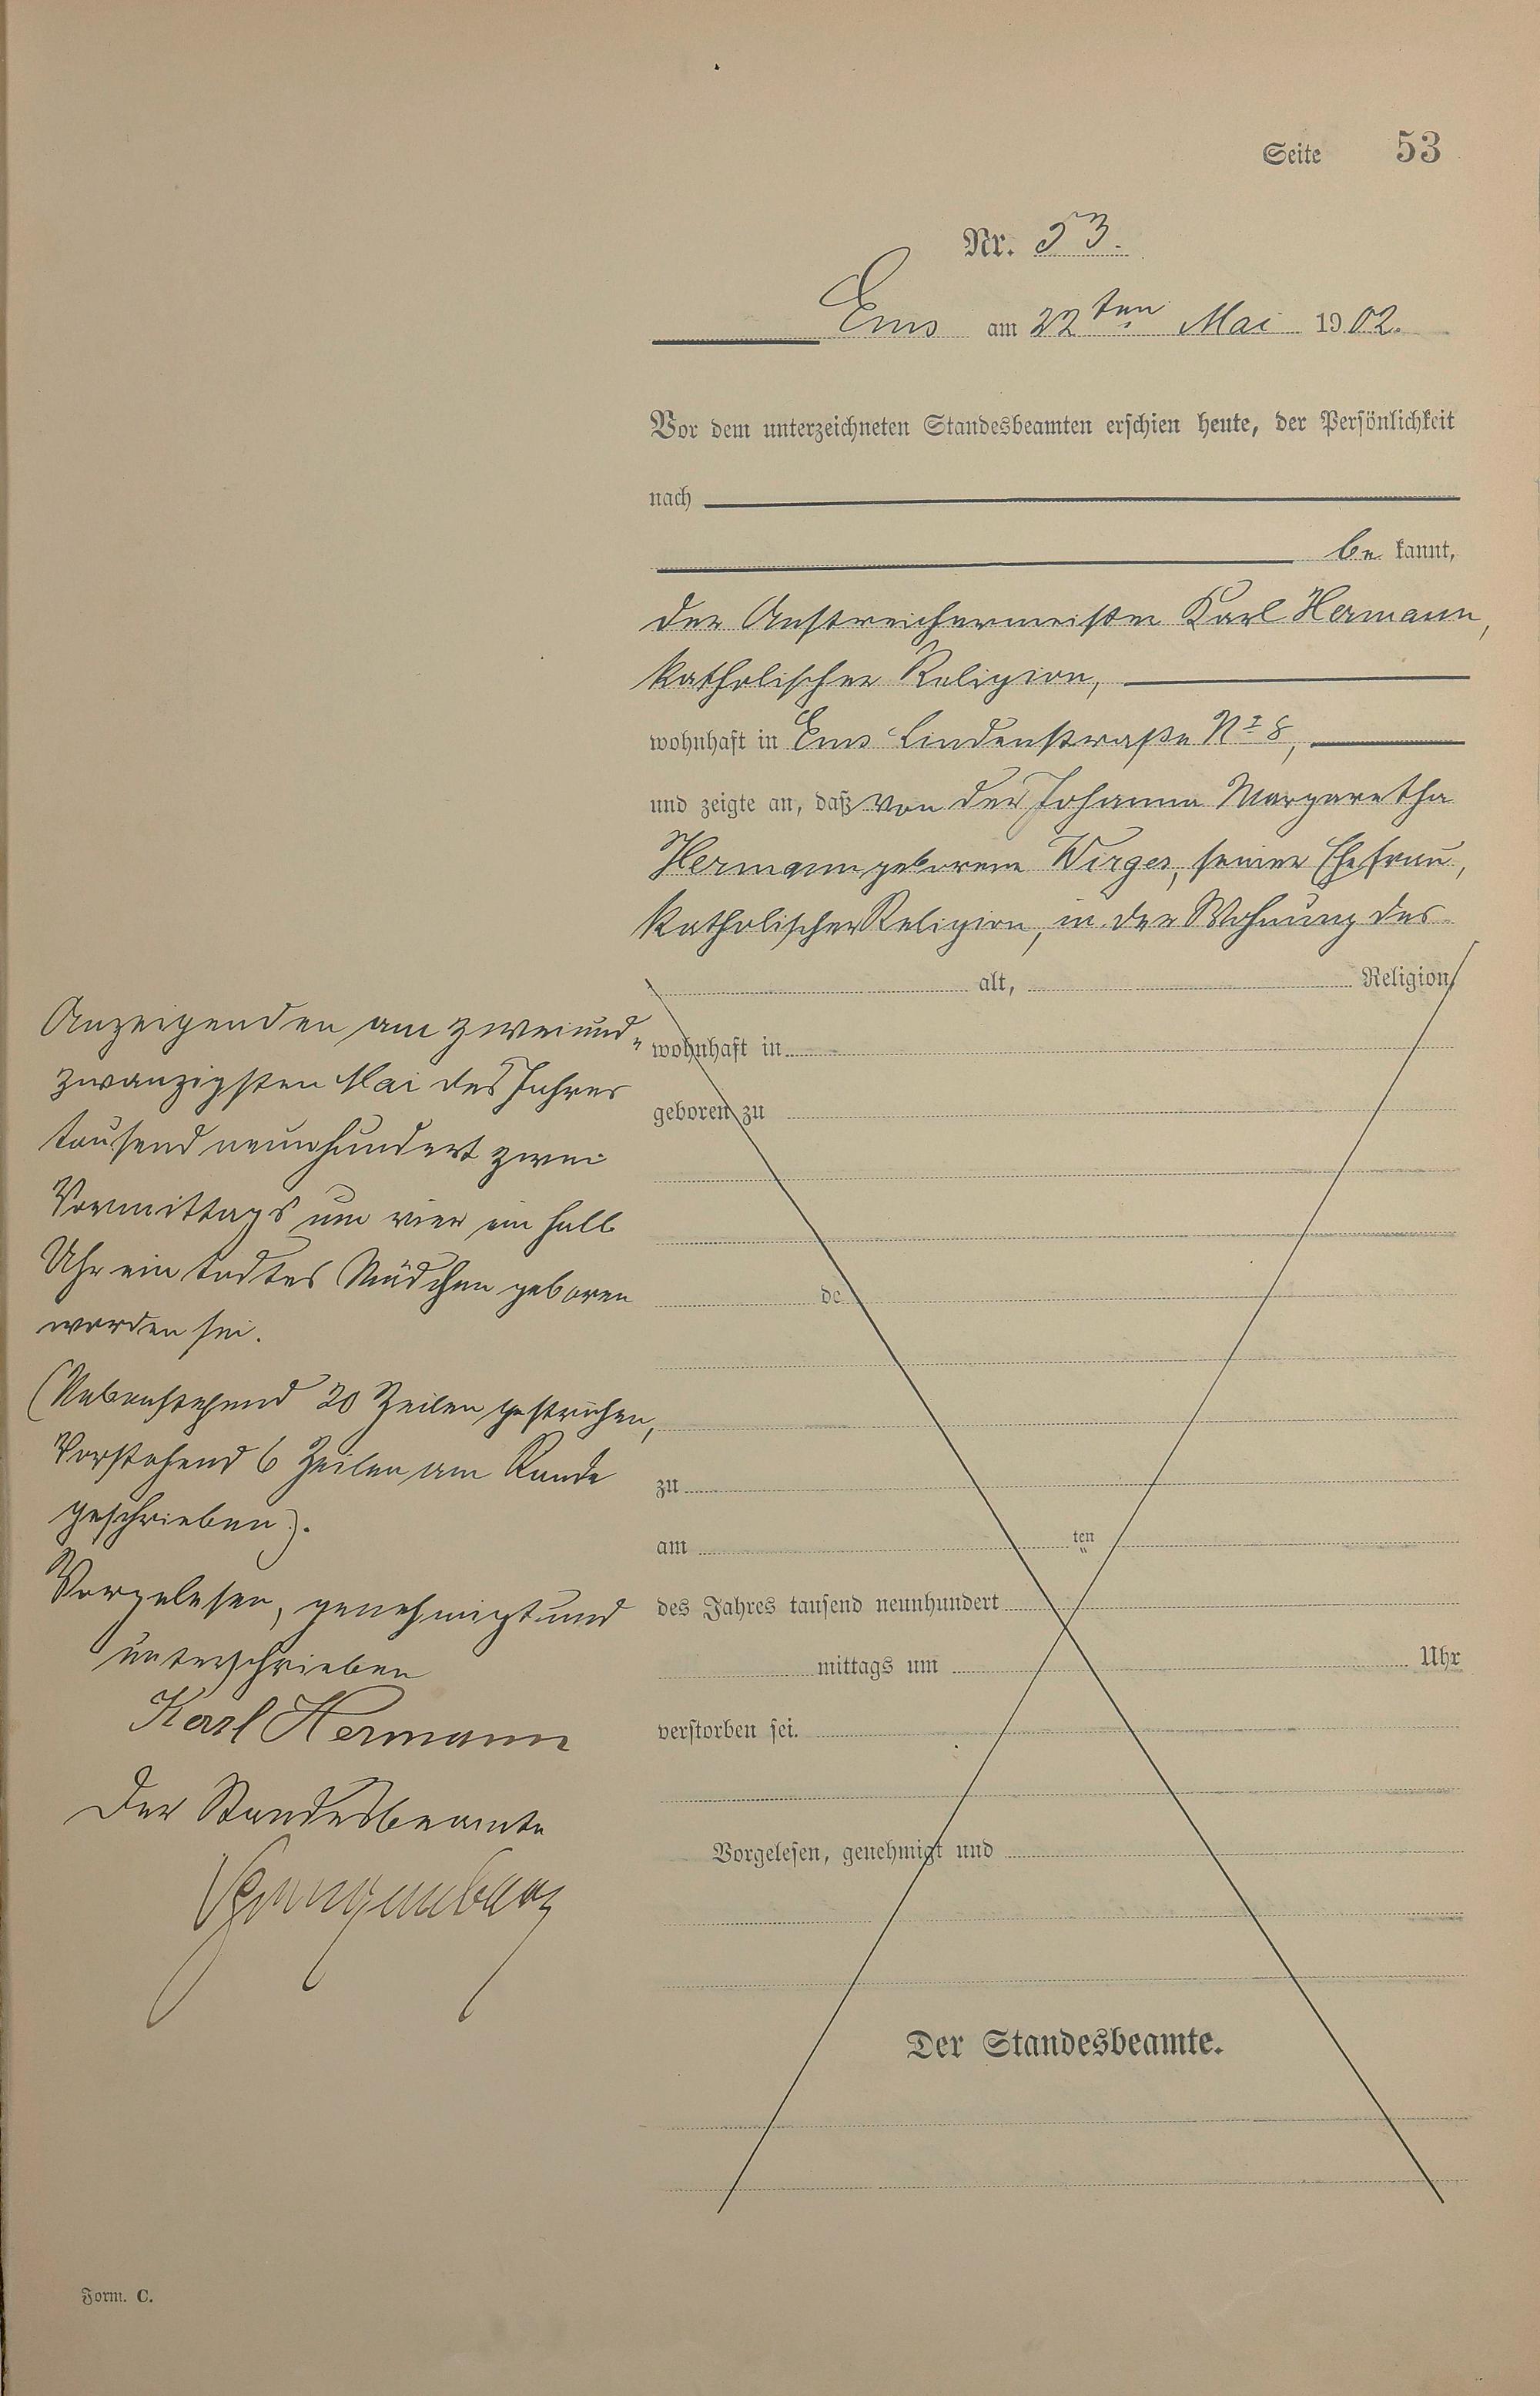 Seite 53
Nr. 53.
Ems am 22ten Mai 1902.
Vor dem unterzeichneten Standesbeamten erschien heute, der Persönlichkeit
nach
be kannt,
der Anstreichermeister Karl Hermann,
katholischer Religion,
wohnhaft in Ems Lindenstraße No 8,
und zeigte an, daß von der Johanna Margaretha
Hermann geborene Wirges, seiner Ehefrau,
katholischer Religion, in der Wohnung des
alt, Religion,
wohnhaft in
geboren zu
de
zu
am ten
des Jahres tausend neunhundert
mittags um Uhr
verstorben sei.
Vorgelesen, genehmigt und
Der Standesbeamte.
Anzeigenden am zweiund„
zwanzigsten Mai des Jahres
tausend neunhundert zwei
Vormittags um vier ein halb
Uhr ein todtes Mädchen geboren
worden sei.
(Nebenstehend 20 Zeilen gestrichen,
Vorstehend 6 Zeilen am Rande
geschrieben).
Vorgelesen, genehmigt und
unterschrieben
Karl Hermann
Der Standesbeamte
Form. C.